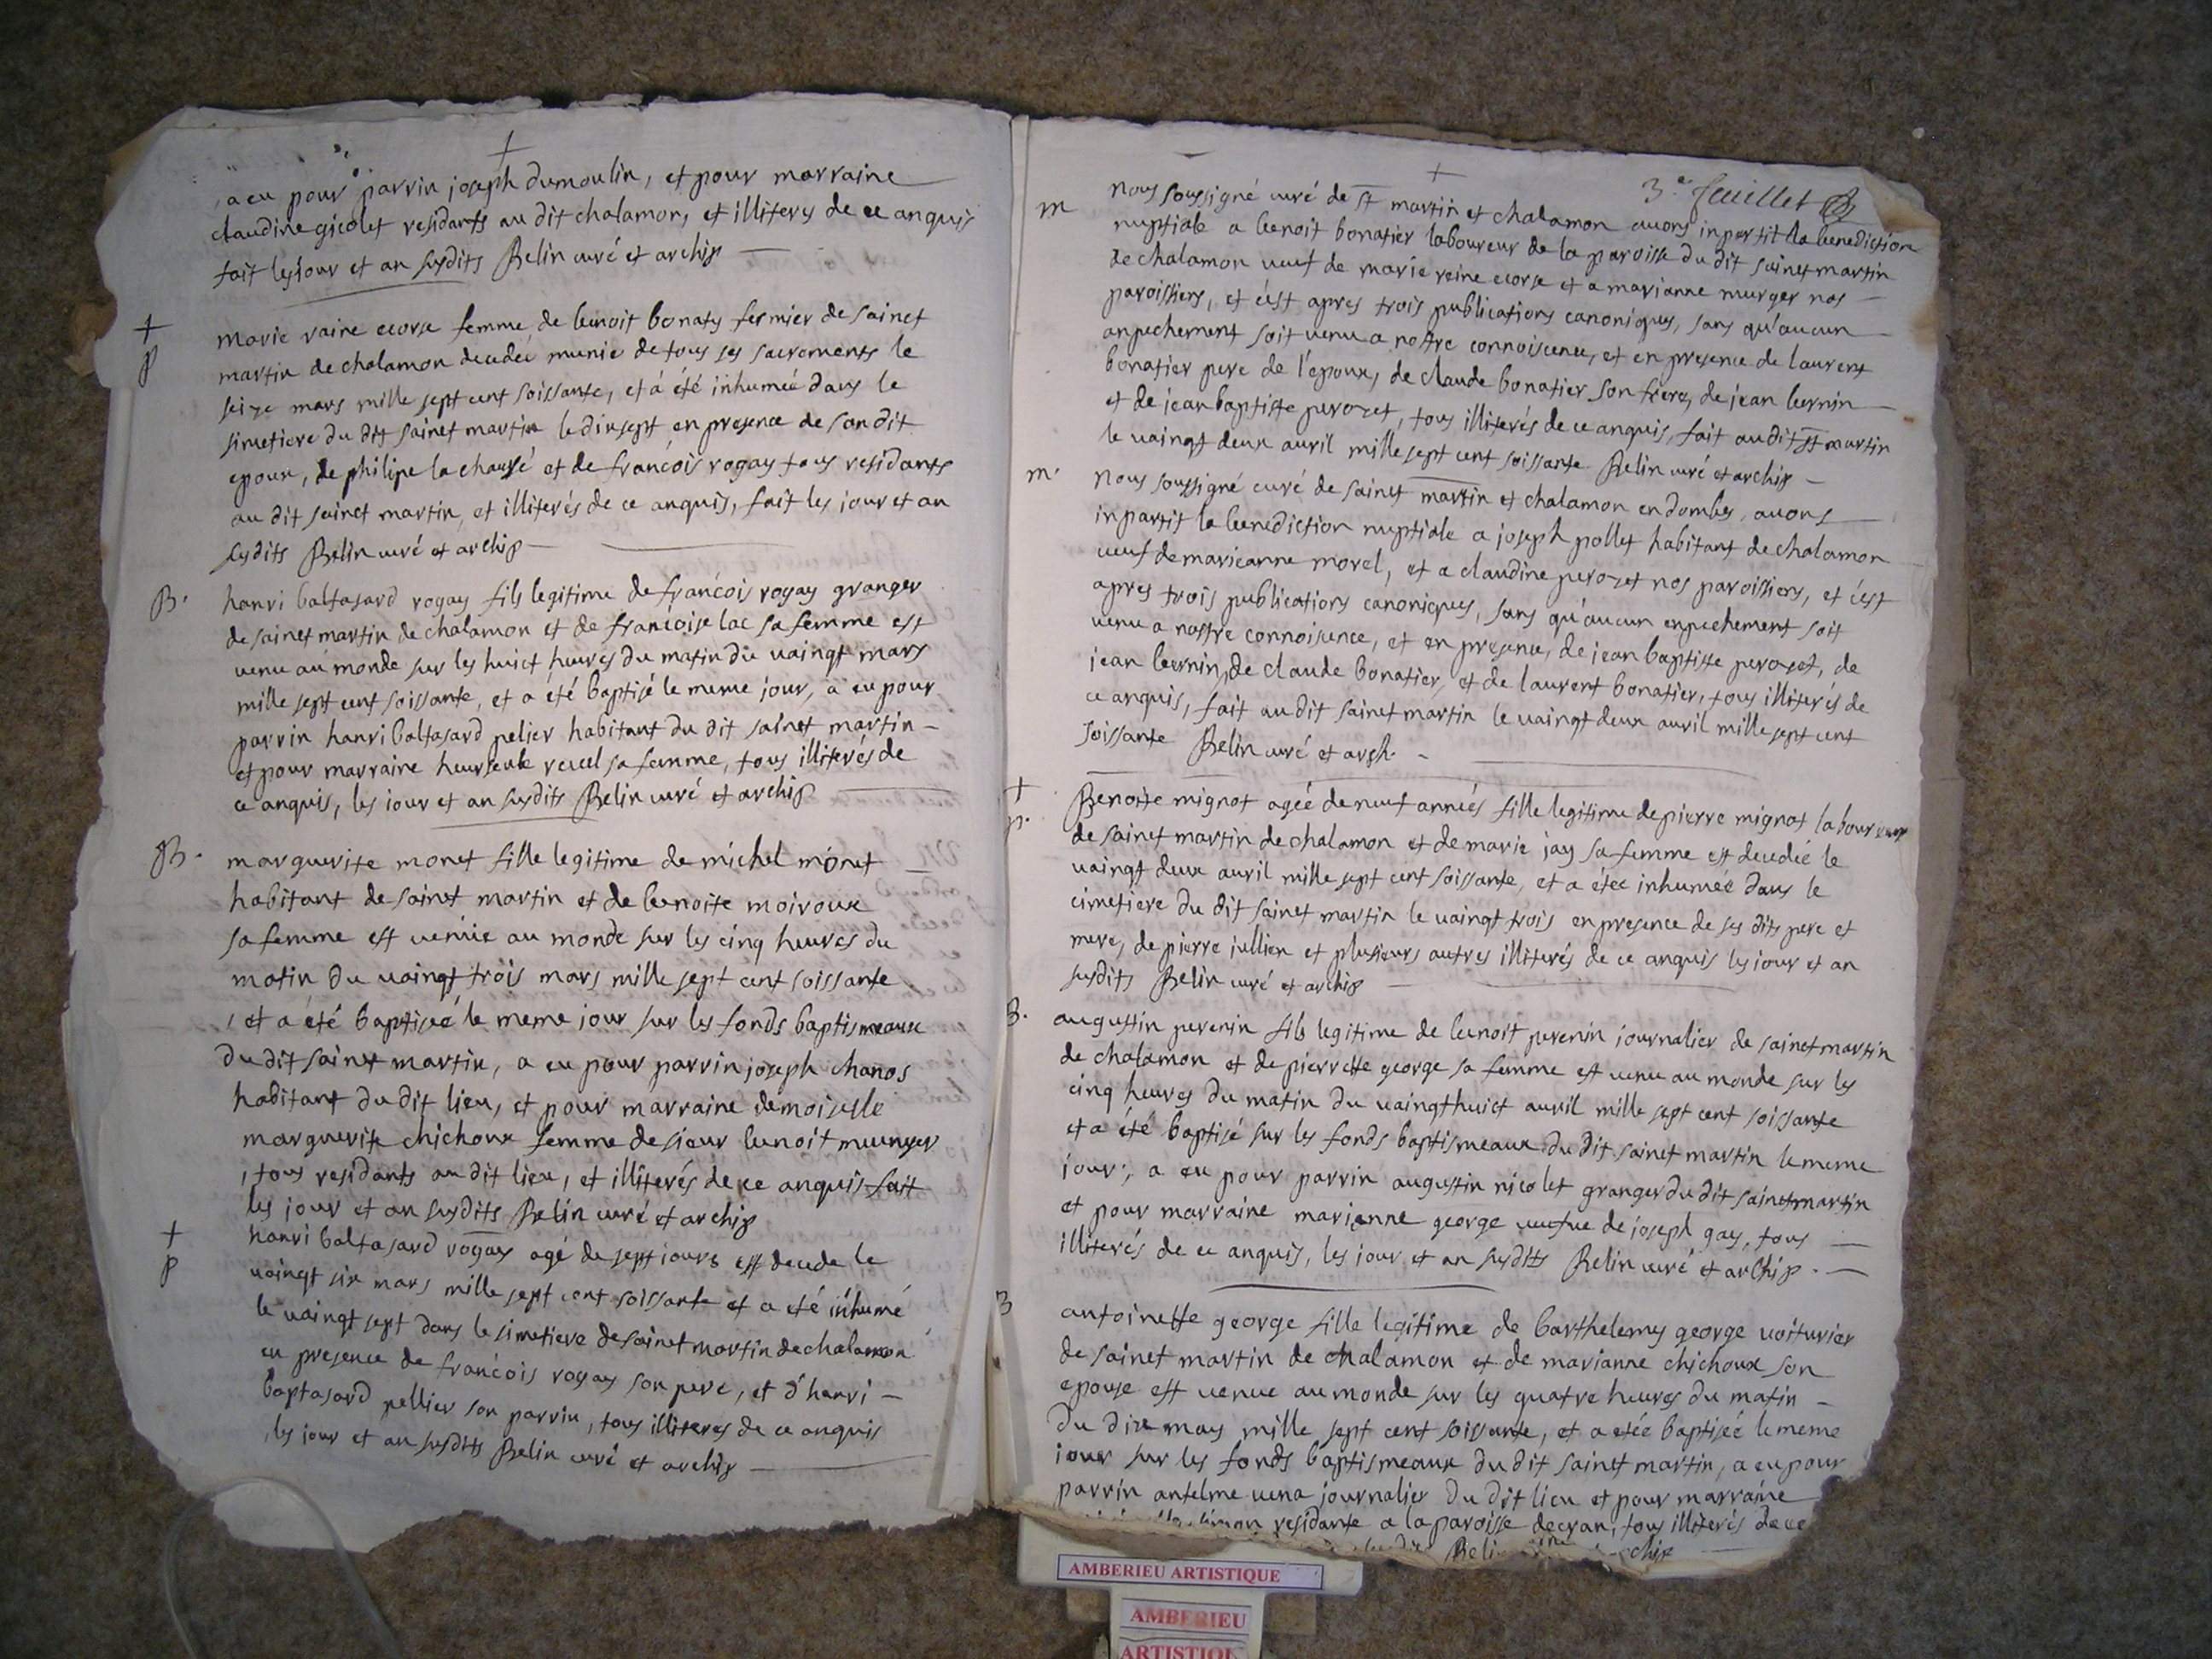 +
a eu pour parrin joseph dumoulin, et pour marraine
claudine gicolet residants au dit chalamon, et illiterés de ce anquis
fait les jour et an susdits Belin curé et archip
+
p
marie raine ecorse femme de benoit bonaty fermier de sainct
martin de chalamon decedeé munie de tous ses sacrements le
seize mars mille sept cent soissante, et á été inhumeé dans le
simetiere du dit sainct martin le dixsept en presence de son dit
epoux, de philipe la chausé et de francois rogay tous residants
au dit sainct martin, et illiterés de ce anquis, fait les jour et an
susdits Belin curé et archip
B.
hanri baltasard rogay fils legitime de francois rogay granger
de sainct martin de chalamon et de francoise lac sa femme est
venu au monde sur les huict heures du matin du vaingt mars
mille sept cent soissante, et a été baptisé le meme jour, a eu pour
parrin hanri baltasard pelier habitant du dit sainct martin
et pour marraine revel sa femme, tous illiterés de
ce anquis, les jour et an susdits Belin curé et archip
B.
marguerite monet fille legitime de michel monet
habitant de sainct martin et de benoite moiroux
sa femme est venüe au monde sur les cinq heures du
matin du vaingt trois mars mille sept cent soissante
, et a été baptiseé le meme jour sur les fonds baptismeaux
du dit sainct martin, a eu pour parrin joseph chanos
habitant du dit lieu, et pour marraine demoiselle
marguerite chichoux femme de sieur benoit meunyer
, tous residants au dit lieu, et illiterés de ce anquis fait
les jour et an susdits Belin curé et archip
+
p
hanri baltasard rogay agé de sept jours est decede le
vaingt six mars mille sept cent soissante et a été inhumé
le vaingt sept dans le simetiere de sainct martin de chalamon
en presence de francois rogay son pere, et d'hanri
baptasard pellier son parrin, tous illiteres de ce anquis
, les jour et an susdits Belin curé et archip
+
3e feuillet
m
nous soussigné curé de st martin et chalamon avons inpartit la benediction
nuptiale a benoit bonatier laboureur de la paroisse du dit sainct martin
de chalamon veuf de marie reine ecorse et a marianne murger nos
paroissiens, et c'est apres trois publications canoniques, sans qu'aucun
anpechement soit venu a nostre connoiscence, et en presence de laurent
bonatier pere de l'époux, de claude bonatier son frere, de jean bernin
et de jean baptiste perozet, tous illiterés de ce anquis, fait au dit st martin
le vaingt deux avril mille sept cent soissante Belin curé et archip
m.
nous soussigné curé de sainct martin et chalamon en dombes, avons
inpartit la benediction nuptiale a joseph pollet habitant de chalamon
veuf de marieanne morel, et a claudine perozet nos paroissiens, et c'est
apres trois publications canoniques, sans qu'aucun enpechement soit
venu a nostre connoisence, et en presence, de jean baptiste perozet, de
jean bernin, de claude bonatier, et de laurent bonatier, tous illiterés de
ce anquis, fait au dit sainct martin le vaingt deux avril mille sept cent
soissante Belin curé et arch.
+
p.
Benoite mignot ageé de neuf anneés fille legitime de pierre mignot laboureur
de sainct martin de chalamon et de marie jay sa femme est decedeé le
vaingt deux avril mille sept cent soissante, et a éteé inhumeé dans le
cimetiere du dit sainct martin le vaingt trois en presence de ses dits pere et
mere, de pierre jullien et plusieurs autres illiterés de ce anquis les jour et an
susdits Belin curé et archip
B.
augustin perenin fils legitime de benoit perenin journalier de sainct martin
de chalamon et de pierrette george sa femme est venu au monde sur les
cinq heures du matin du vaingthuict avril mille sept cent soissante
et a été baptisé sur les fonds baptismeaux du dit sainct martin le meme
jour; a eu pour parrin augustin nicolet granger du dit sainct martin
et pour marraine marianne george veufve de joseph gay, tous
illiterés de ce anquis, les jour et an susdits Belin curé et archip.
B
antoinette george fille legitime de barthelemy george voiturier
de sainct martin de chalamon et de marianne chichoux son
epouse est venue au monde sur les quatre heures du matin
du dix may mille sept cent soissante, et a eteé baptiseé le meme
jour sur les fonds baptismeaux du dit sainct martin, a eu pour
parrin antelme vena journalier du dit lieu et pour marraine
residante a la paroisse decran, tous illiterés de ce
AMBERIEU ARTISTIQUE
AMBERIEU
ARTISTIQUE